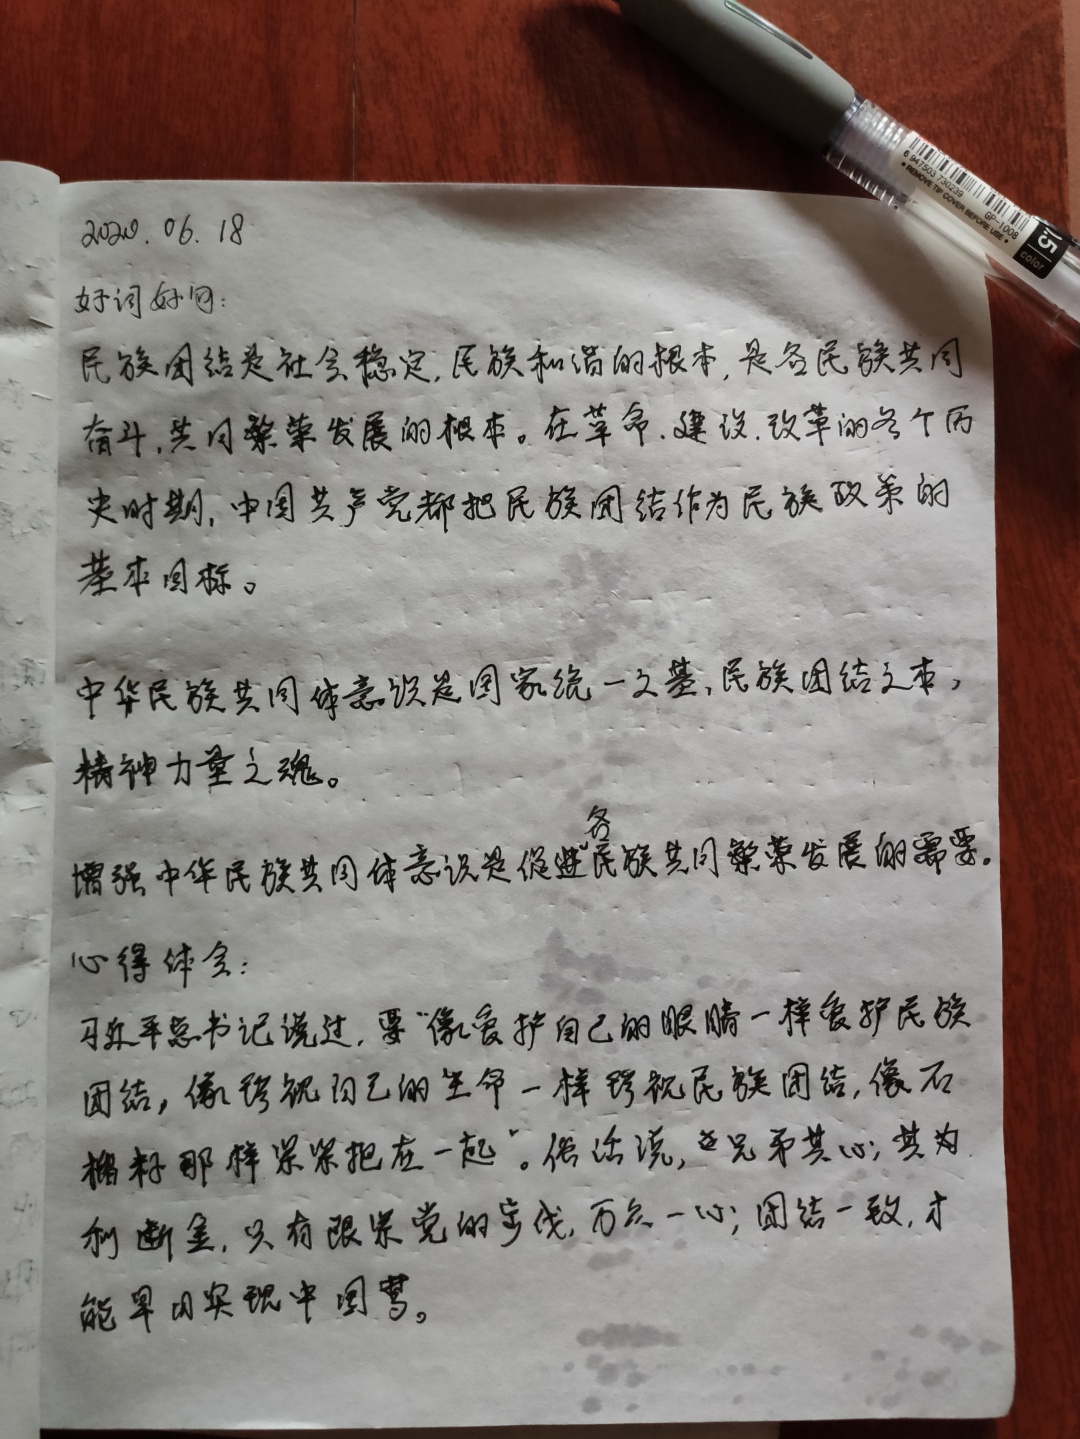 6 947503 730239
REMOVE TIP COVER BEFORE USE
GP-1008
color
2020.06.18
好词好句：
民族团结是社会稳定，民族和谐的根本，是各民族共同
奋斗，共同繁荣发展的根本。在革命、建设、改革的各个历
史时期，中国共产党都把民族团结作为民族政策的
基本目标。
中华民族共同体意识是国家统一之基、民族团结之本，
精神力量之魂。
增强中华民族共同体意识是促进各民族共同繁荣发展的需要。
心得体会：
习近平总书记说过，要“像爱护自己的眼睛一样爱护民族
团结，像珍视自己的生命一样珍视民族团结，像石
榴籽那样紧紧抱在一起”。俗话说，兄弟其心；其为
利断金，只有跟紧党的步伐，万众一心；团结一致，才
能早日实现中国梦。